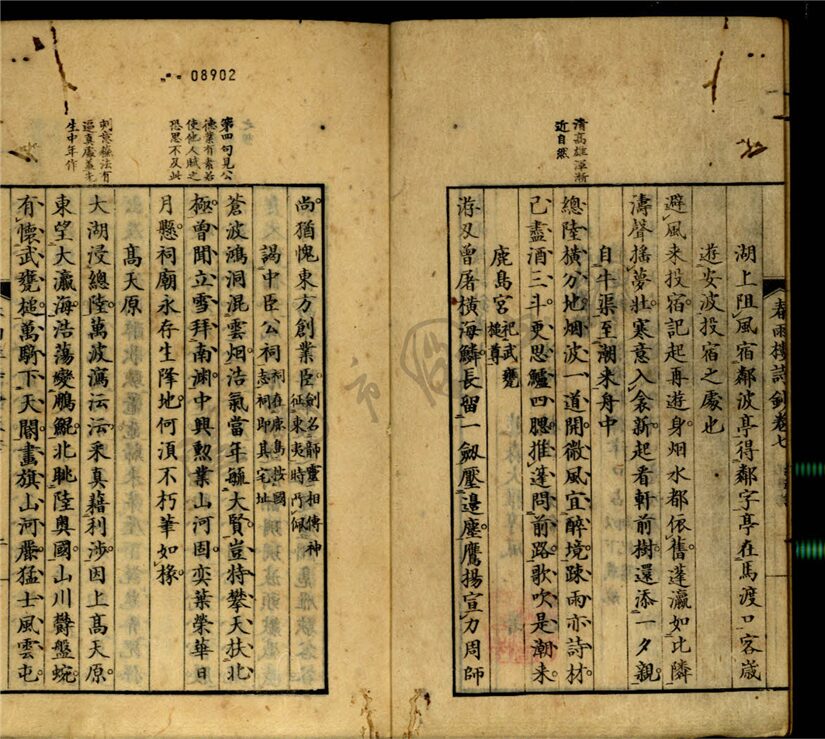 08902
清高雄渾漸
近自然
湖上阻風宿鄰波亭得鄰字亭在馬渡口客歲
遊安波投宿之處也
避風來投宿記起再遊身烟水都依舊蓬瀛如比隣
濤聲搖夢壯寒意入衾新起看軒前樹還添一夕親
自牛渠至潮來舟中
總陸橫分地烟波一道開微風宜醉境疎雨亦詩材
己盡酒三斗更思鱸四腮推蓬問前路歌吹是潮來
鹿島宮祀武甕
槌尊
游刃曾屠橫海鱗長留一劔壓邊塵鷹揚宣力周師
春雨樓詩鈔卷七
第四句見公
德業有素若
使他人賦之
恐思不及此
刻意極法有
逼真處蓋先
生中年作
尚猶愧東方創業臣劔名師靈相傳神
征東夷時所佩
謁中臣公祠祠在鹿島按國
志祠即其宅址
蒼波鴻洞混雲烟浩氣當年毓大賢豈特攀天扶北
極曾聞立雪拜南淵中興勲業山河固奕葉榮華日
月懸祠廟永存生降地何須不朽筆如椽
高天原
大湖浸總陸萬波瀉沄沄采真藉利涉因上高天原
東望大瀛海浩蕩變鵬鯤北眺陸奧國山川鬱盤蜿
有懷武甕槌萬騎下天閽畫旗山河震猛士風雲屯